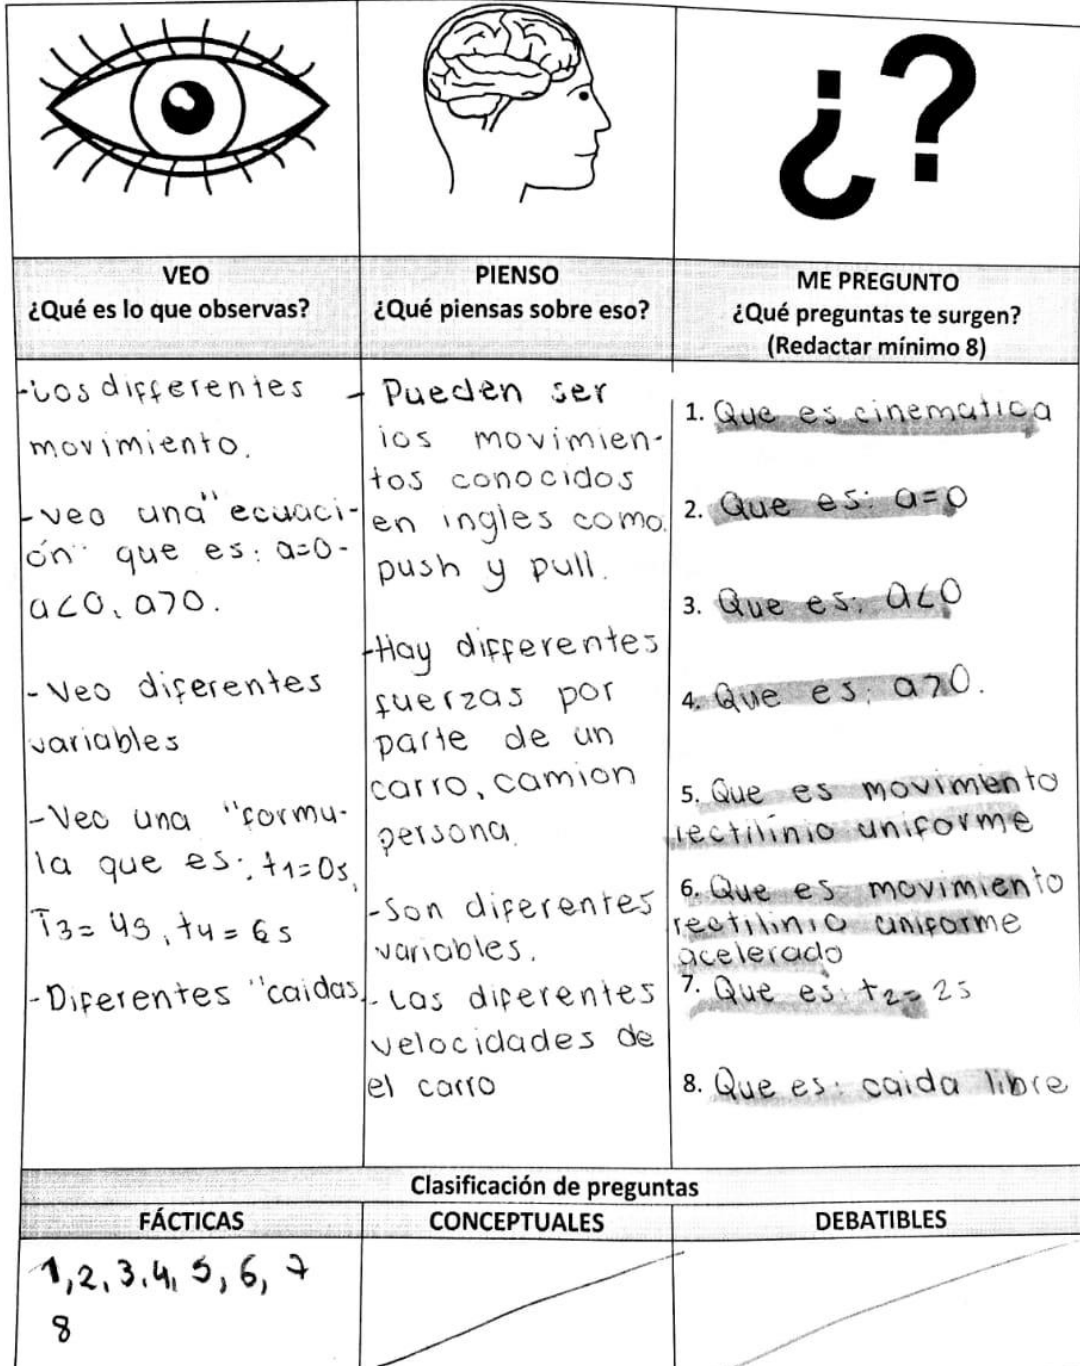 ¿?
VEO
¿Qué es lo que observas?
PIENSO
¿Qué piensas sobre eso?
ME PREGUNTO
¿Qué preguntas te surgen?
(Redactar mínimo 8)
-Los differentes
movimiento.
-veo una "ecuaci-
ón" que es: a=0-
a<0, a>0.
-Veo diferentes
variables
-Veo una "formu-
la que es: t1=0s,
T3= 4s, t4= 6s
-Diferentes "caidas
- Pueden ser
los movimien-
tos conocidos
en ingles como
push y pull.
-Hay differentes
fuerzas por
parte de un
carro, camion
persona.
-Son diferentes
variables.
-Las diferentes
velocidades de
el carro
1. Que es cinematica
2. Que es: a=0
3. Que es: a<0
4. Que es: a>0.
5. Que es movimiento
rectilinio uniforme
6. Que es movimiento
rectilinio uniforme
acelerado
7. Que es: t2= 2s
8. Que es: caida libre
Clasificación de preguntas
FÁCTICAS
CONCEPTUALES
DEBATIBLES
1,2,3,4,5,6,7
8